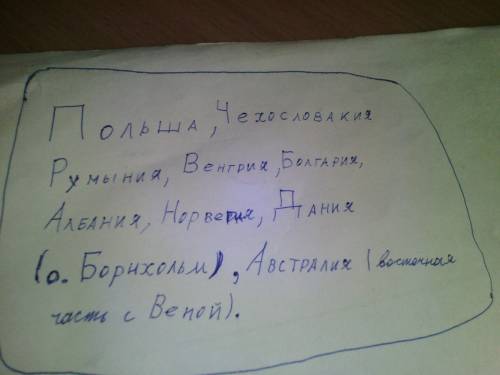 Польша, Чехословакия
Румыния, Венгрия, Болгария,
Албания, Норвегия, Дания
(о. Борнхольм), Австралия (восточная
часть с Веной).